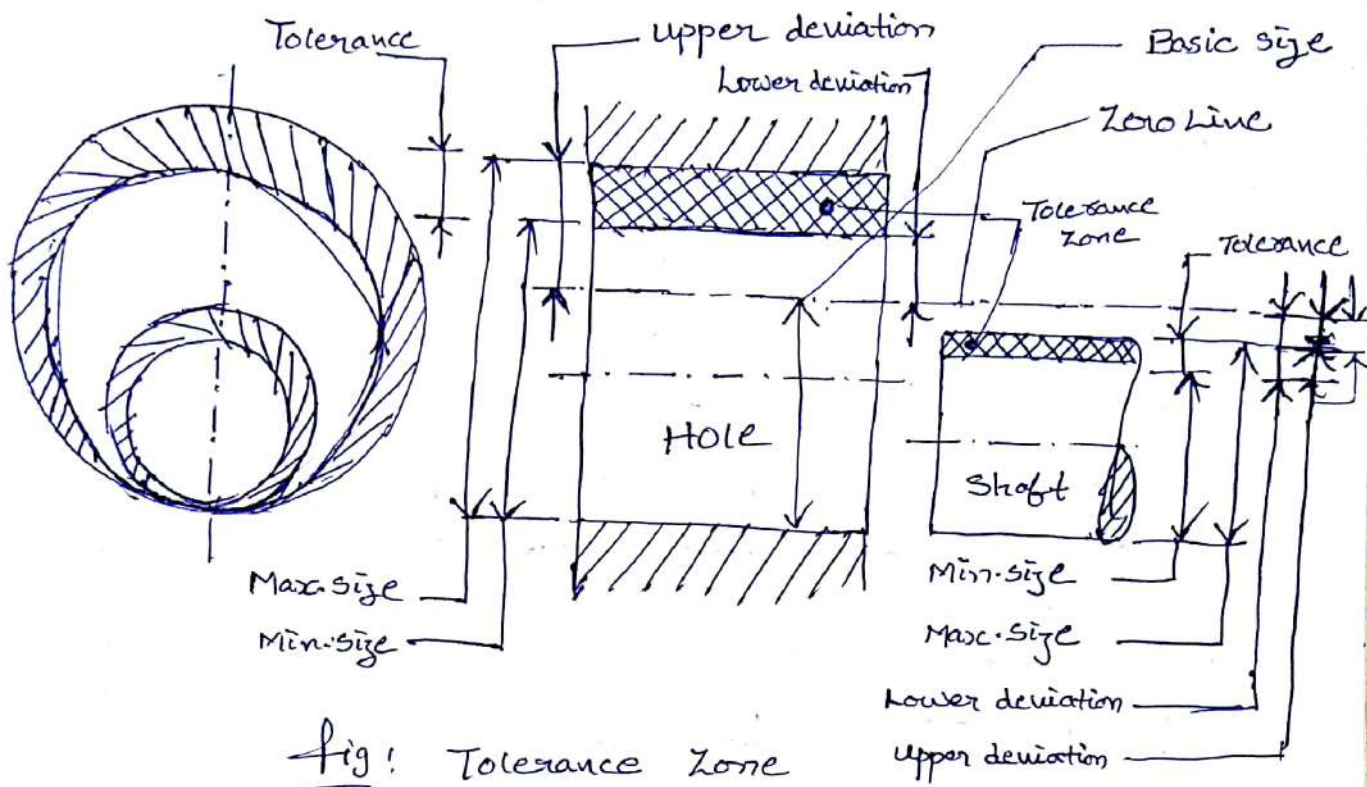 Tolerance
upper deviation
Basic size
Lower deviation
Zero Line
Tolerance
Zone
Tolerance
HOLE
Shaft
Max. size
Min. size
Min. size
Max. size
Lower deviation
upper deviation
fig: Tolerance Zone